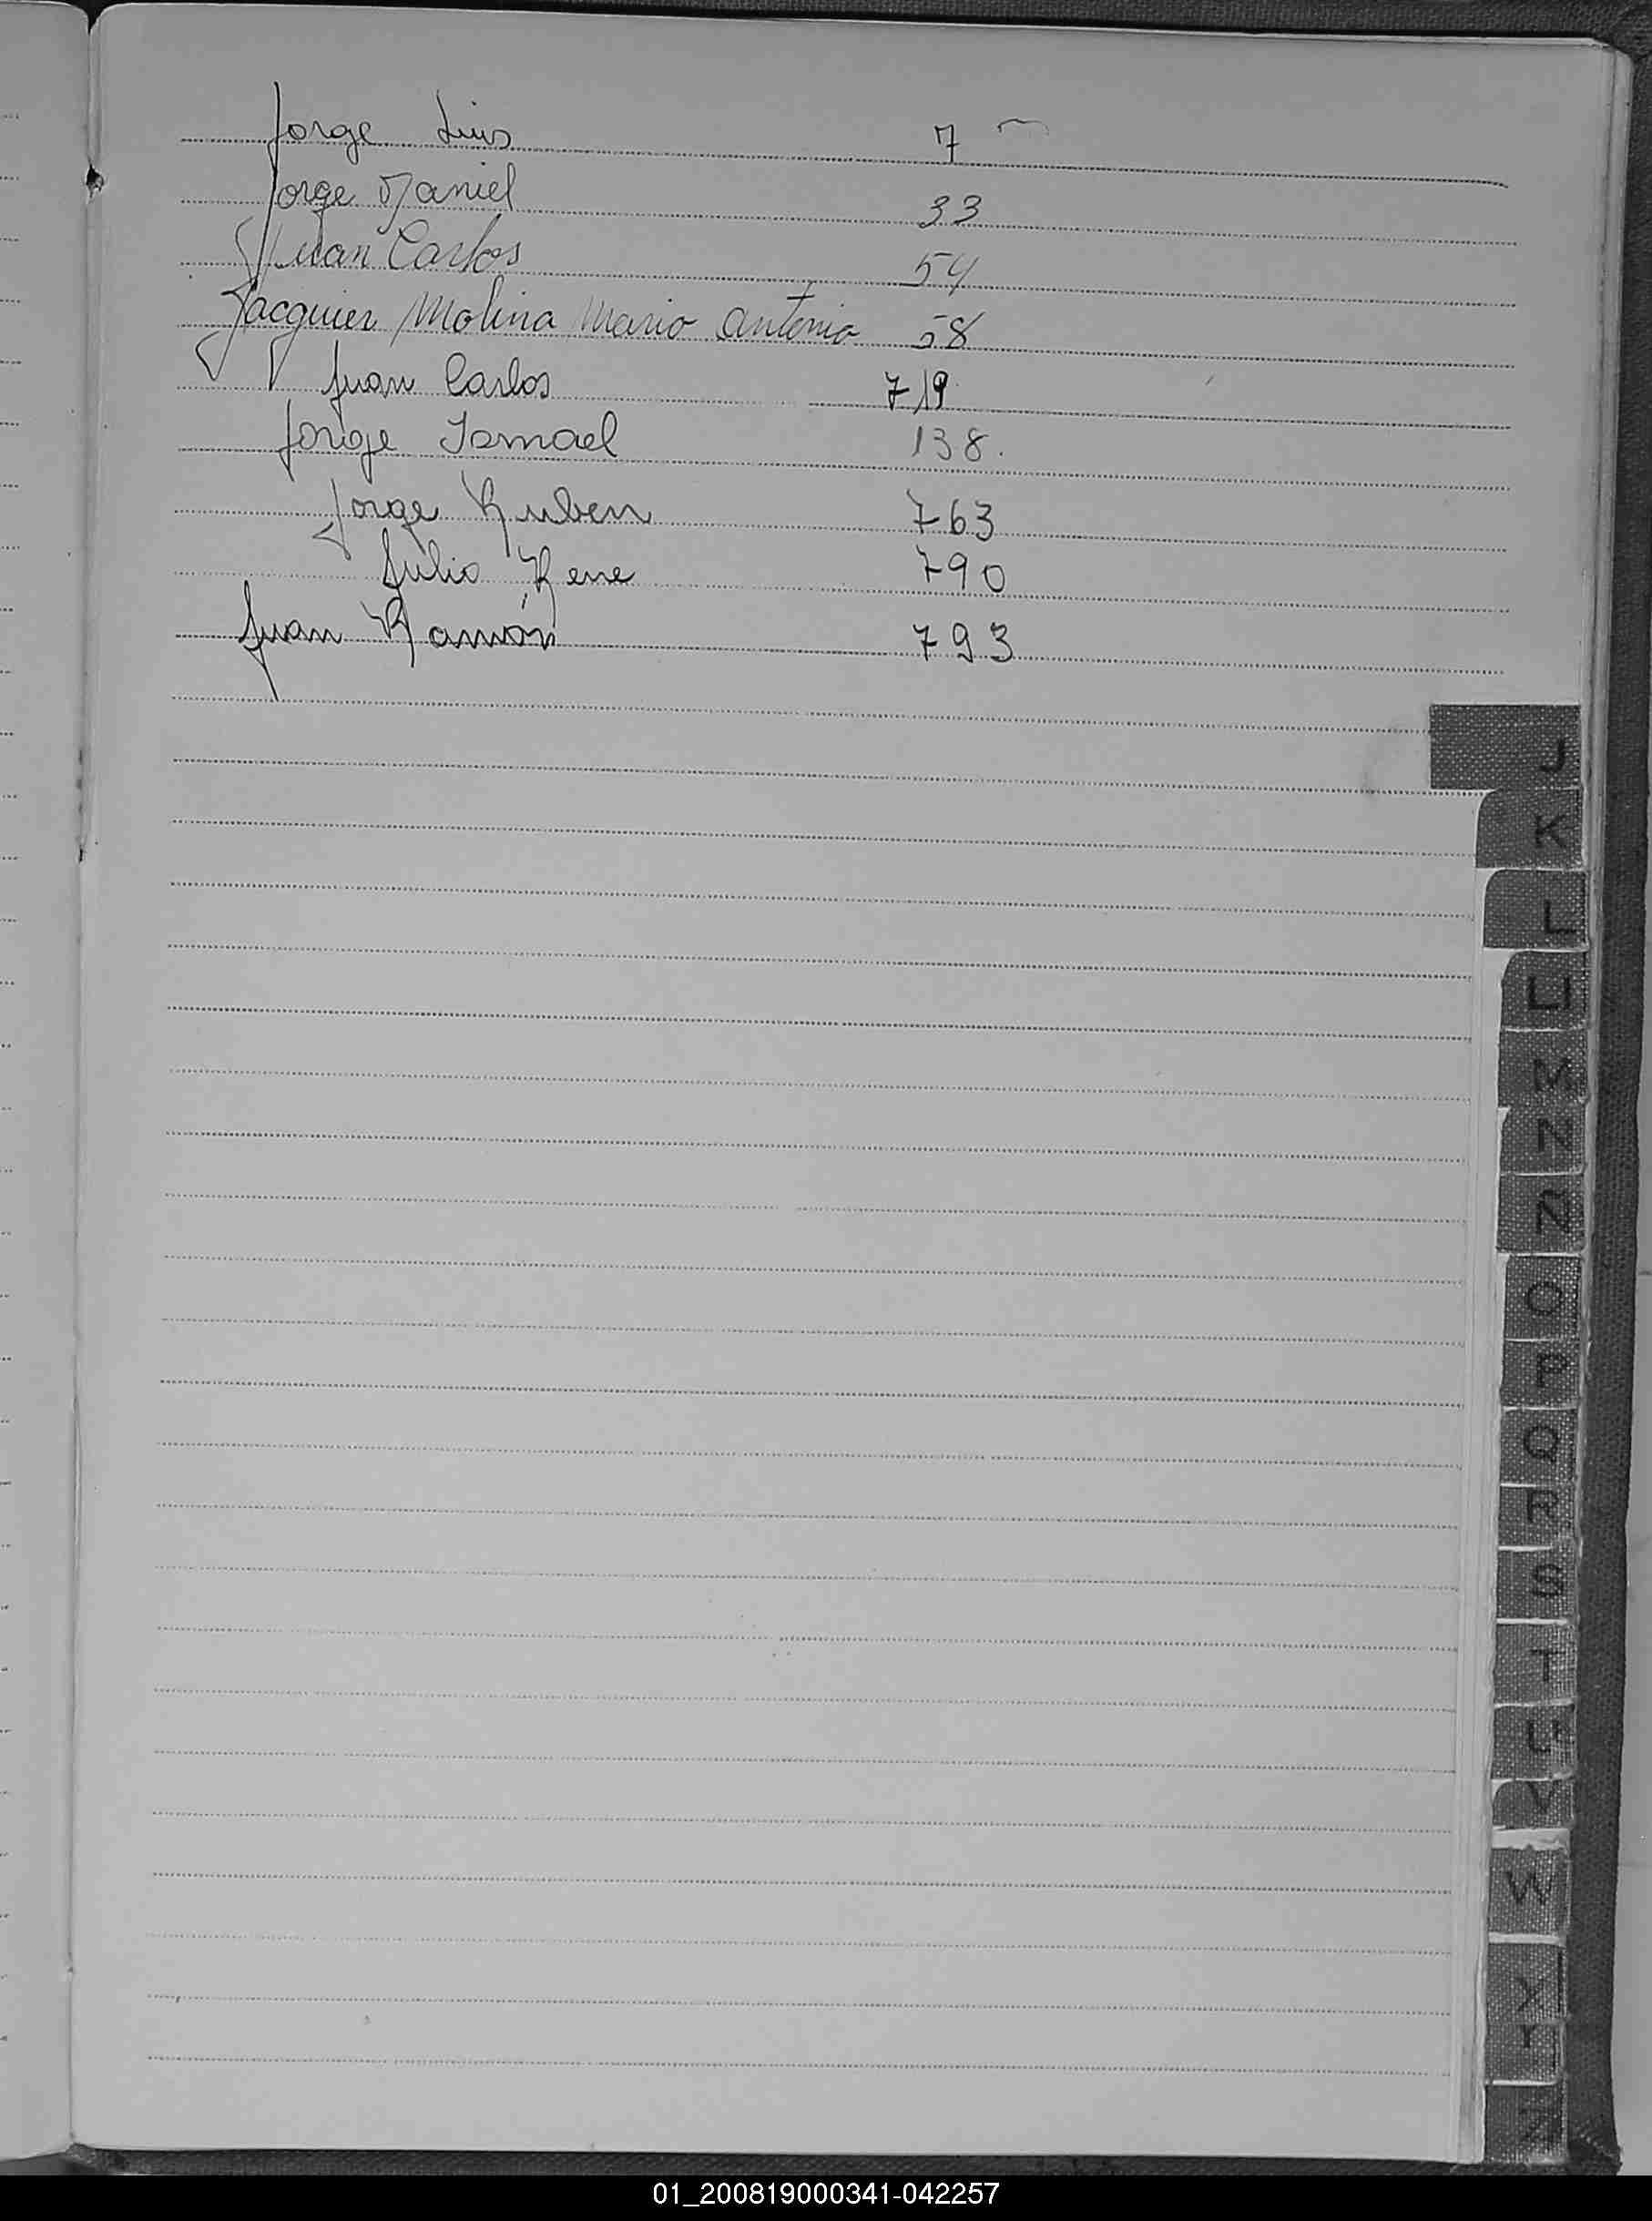 Jorge Luis 7
Jorge Daniel 33
Juan Carlos 54
Jacquier Molina Mario Antonio 58
Juan Carlos 719
Jorge Ismael 138.
Jorge Ruben 763
Julio Rene 790
Juan Ramón 793
J
K
L
LL
M
N
Ñ
O
P
Q
R
S
T
U
V
W
Y
Z
01_200819000341-042257